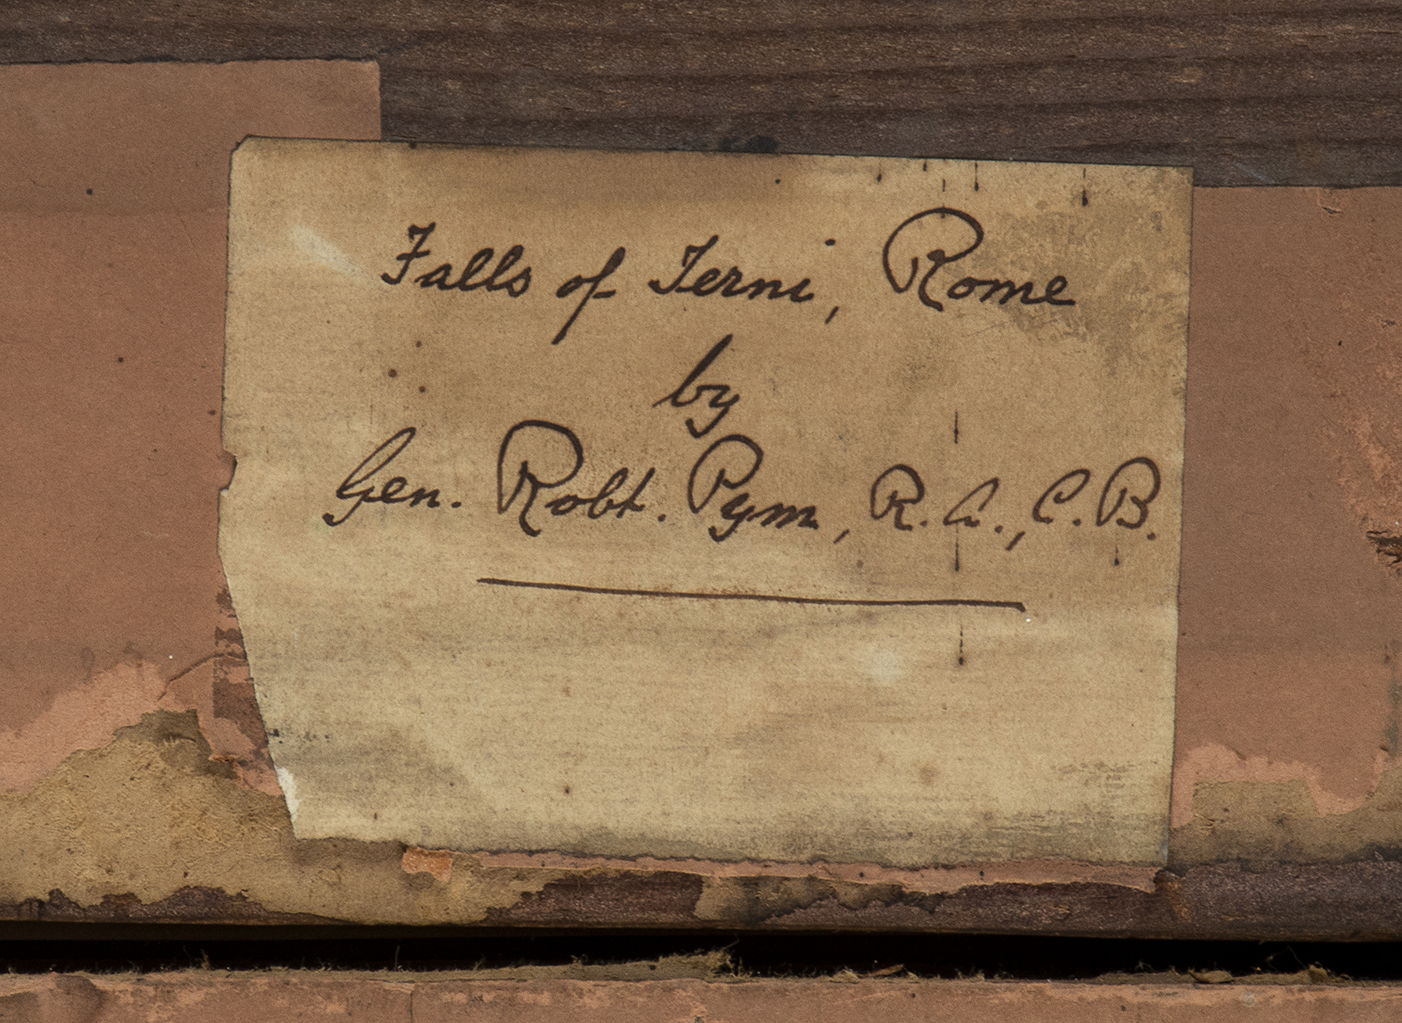 Falls of Terni, Rome
by
Gen. Robt. Pym, R.A., C.B.